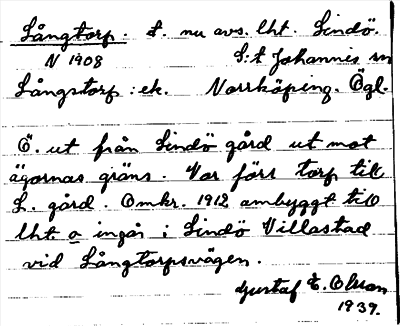 Långtorp. t. nu avs. lht. Lindö.
N 1908 S:t Johannis sn
Långstorp : ek. Norrköping. Ögl.
Ö. ut från Lindö gård ut mot
ägornas gräns. Var förr torp till
L. gård. Omkr. 1912 ombyggt till
lht. o ingår i Lindö Villastad
vid Långtorpsvägen.
Gustaf E. Olson
1939.